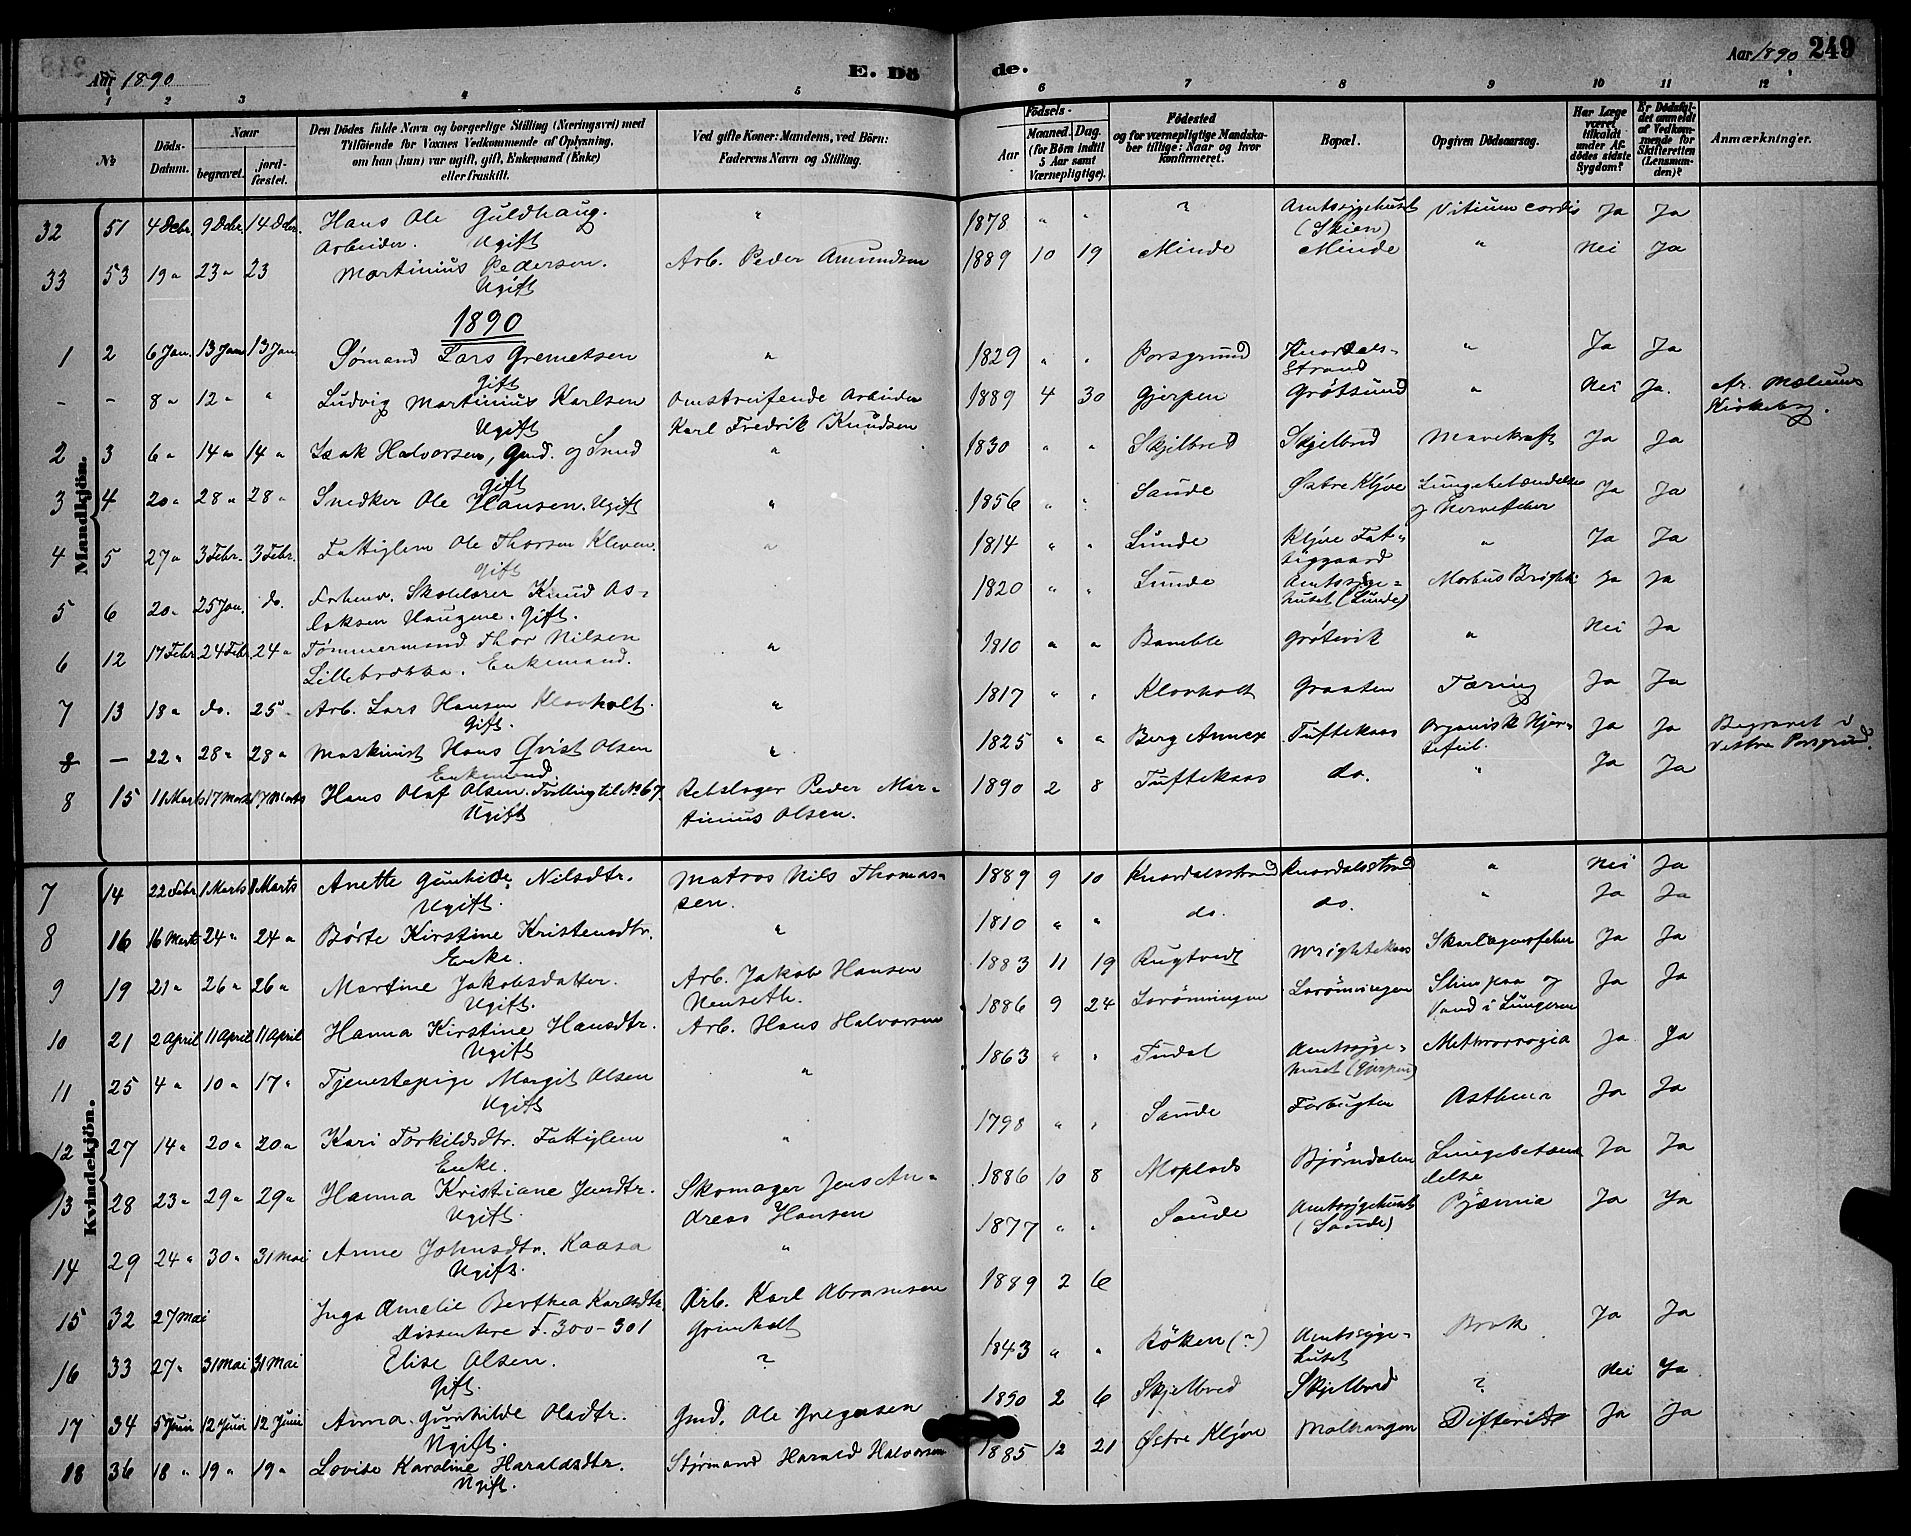 Aar 1890
E. Dö
de.
Aar 1890
249
1 2 3 4 5 6 7 8 9 10 11 12
№
Döds-Datum.
Naar
begravet.
jord-fæstet.
Den Dödes fulde Navn og borgerlige Stilling (Næringsvei) med
Tilföiende for Voxnes Vedkommende af Oplysning,
om han (hun) var ugift, gift, Enkemand (Enke)
eller fraskilt.
Ved gifte Koner: Mandens, ved Börn:
Faderens Navn og Stilling.
Födsels-
Aar
Maaned. Dag.
(for Börn indtil
5 Aar samt
Værnepligtige).
Födested
og for værnepligtige Mandska-
ber tillige: Naar og hvor
konfirmeret.
Bopæl.
Opgiven Dödsaarsag.
Har Læge
været
tilkaldt
under Af-
dödes sidste
Sygdom?
Er Dödsfal-
det anmeldt
af Vedkom-
mende for
Skifteretten
(Lensman-
den)?
Anmærkninger.
Mandkjön.
32 51 4 Debr. 9 Debr. 14 Debr. Hans Ole Guldhaug. " 1878 " " ? Amtssygehuset Vitium cordis Ja Ja
Arbeider. Ugift (Skien)
33 53 19 " 23 " 23 Martinius Pedersen. Arb. Peder Amundsen 1889 10 19 Minde Minde " Nei Ja
Ugift
1890
1 2 6 Jan. 13 Jan 13 Jan. Sømand Lars Gremetsen " 1829 " " Porsgrund Knardals- " Ja Ja
Gift Strand
- - 8 " 12 " " Ludvig Martinius Karlsen Omstreifende Arbeider 1889 4 30 Gjerpen Grøtsund " Nei Ja.
Ugift Karl Fredrik Knudsen Kirkebog.
2 3 6 " 14 " 14 " Isak Halvorsen, Gmd. og Smed " 1830 " " Skjelbred Skjelbred Mavekræft Ja Ja
Gift
3 4 20 " 28 " 28 " Snedker Ole Hansen. Ugift " 1856 " " Saude Østre Klyve Lungebetændelse Ja Ja
og Nervefeber
4 5 27 " 3 Febr. 3 Febr. Fattiglem Ole Thorsen Kleven. " 1814 " " Lunde Klyve Fat- " Ja Ja
Gift tiggaard
5 6 20 " 25 Jan. do. Forhenv. Skolelærer Knud As- 1820 " " Lunde Amtssyge- Morbus Brightii Ja Ja
laksen Haugene. Gift. huset (Lunde)
6 12 17 Febr 24 Febr. 24 " Tømmermand Thor Nilsen " 1810 " " Bamble Grøtsvik " Nei Ja
Lillebrækka. Enkemand.
7 13 18 " do. 25 " Arb. Lars Hansen Klovholt. " 1817 " " Klovholt Graaten Tæring Ja Ja
Gift.
8 - 22 " 28 " 28 " Maskinist Hans Qvist Olsen " 1825 " " Berg Annex Tuftekaas Organisk Hjer- Ja Ja Begravet i
Enkemand. tefeil. Vestre Porsgrund.
8 15 11 Marts 17 Marts 17 Marts Hans Olaf Olsen. Tvilling til No 67. Rebslager Peder Mar- 1890 2 8 Tuftekaas do. " Ja Ja
Ugift tinius Olsen.
Kvindekjön.
7 14 22 Febr 1 Marts 1 Marts Anette Gunhilde Nilsdtr. Matros Nils Thomas- 1889 9 10 Knardalsstrand Knardalsstrand " Nei Ja
Ugift. sen.
8 16 16 Marts 24 " 24 " Børte Kirstine Kristensdtr. " 1810 " " do. do. " Ja Ja
Enke.
9 19 21 " 26 " 26 " Martine Jakobsdatter. Arb. Jakob Hansen 1883 11 19 Rugtvedt Wrightekaas Skarlagensfeber Ja Ja
Ugift. Henseth.
10 21 2 April 11 April 11 April Hanna Kirstine Hansdtr. Arb. Hans Halvorsen 1886 9 24 Lorömningen Lorömningen Slim paa og Ja Ja
Ugift Vand i Lungerne
11 25 4 " 10 " 17 " Tjenestepige Margit Olsen " 1863 " " Tudal Amtssyge- Methrorrogia Ja Ja
Ugift huset (Gjerpen)
12 27 14 " 20 " 20 " Kari Torkildsdtr. Fattiglem " 1798 " " Saude Forbugten Asthma Ja Ja
Enke.
13 28 23 " 29 " 29 " Hanna Kristiane Jensdtr. Skomager Jens An- 1886 10 8 Moplads Bjørndalen Lungebetæn- Ja Ja
Ugift. dreas Hansen delse
14 29 24 " 30 " 31 Mai Anne Johnsdtr. Kaasa " 1877 " " Saude Amtssygehuset Pjæmia Ja Ja
Ugift. (Saude)
15 32 27 Mai Inga Amalie Berthea Karlsdtr. Arb. Karl Abramsen 1889 2 6
Dissentere F. 300-301 Grimholt
16 33 27 " 31 Mai 31 Mai Elise Olsen. ? 1843 " " Röken (?) Amtssyge- Brok Ja Ja
Gift. huset
17 34 5 Juni 12 Juni 12 Juni Anna Gunhilde Olsdtr. Gmd. Ole Gregersen 1890 2 6 Skjelbred Skjelbred ? Nei Ja
Ugift.
18 36 18 " 19 " 19 " Lovise Karoline Haraldsdtr. Styrmand Harald Halvorsen 1885 12 21 Østre Klyve Molhaugen Difterit Ja Ja
Ugift.